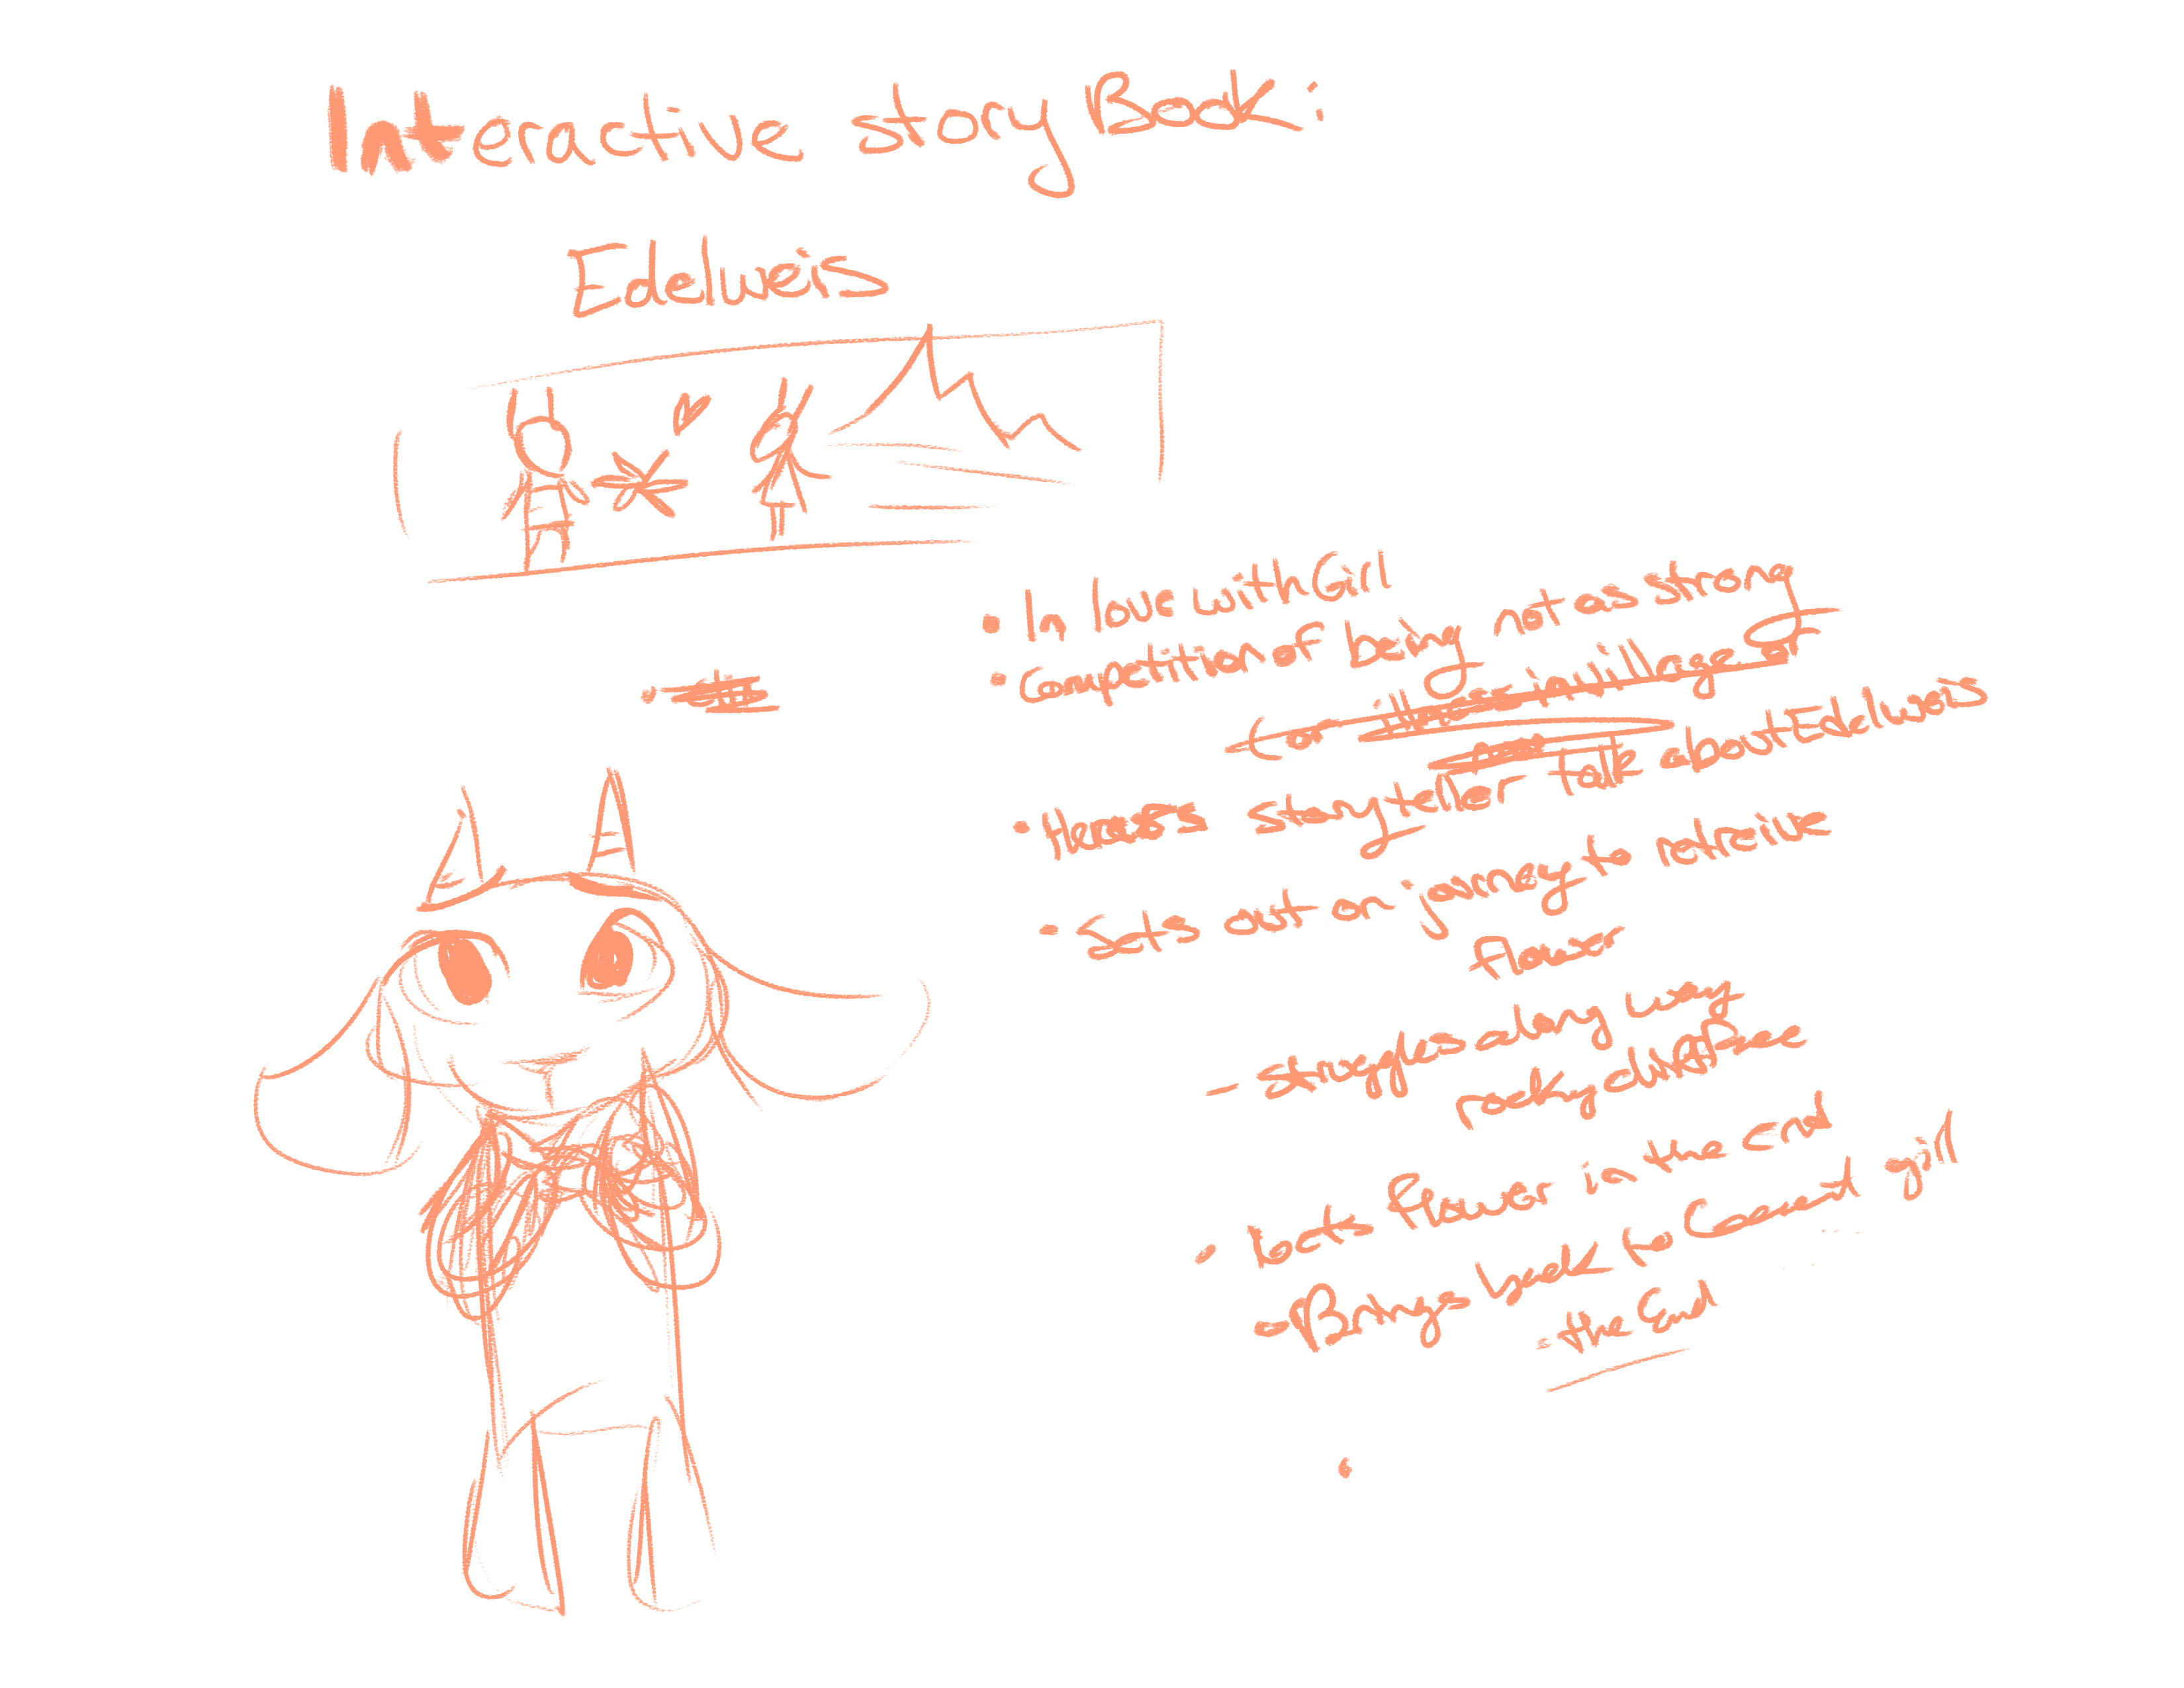 Interactive story Book:
Edelweis
• In love with Girl
• Competition of being not as strong
(or illness in village of
• Hears storyteller talk about Edelweis
• Sets out on journey to retreive
flower
- struggles along way
rocky cliff
• Gets flower in the end
- Brings back to girl
- the End